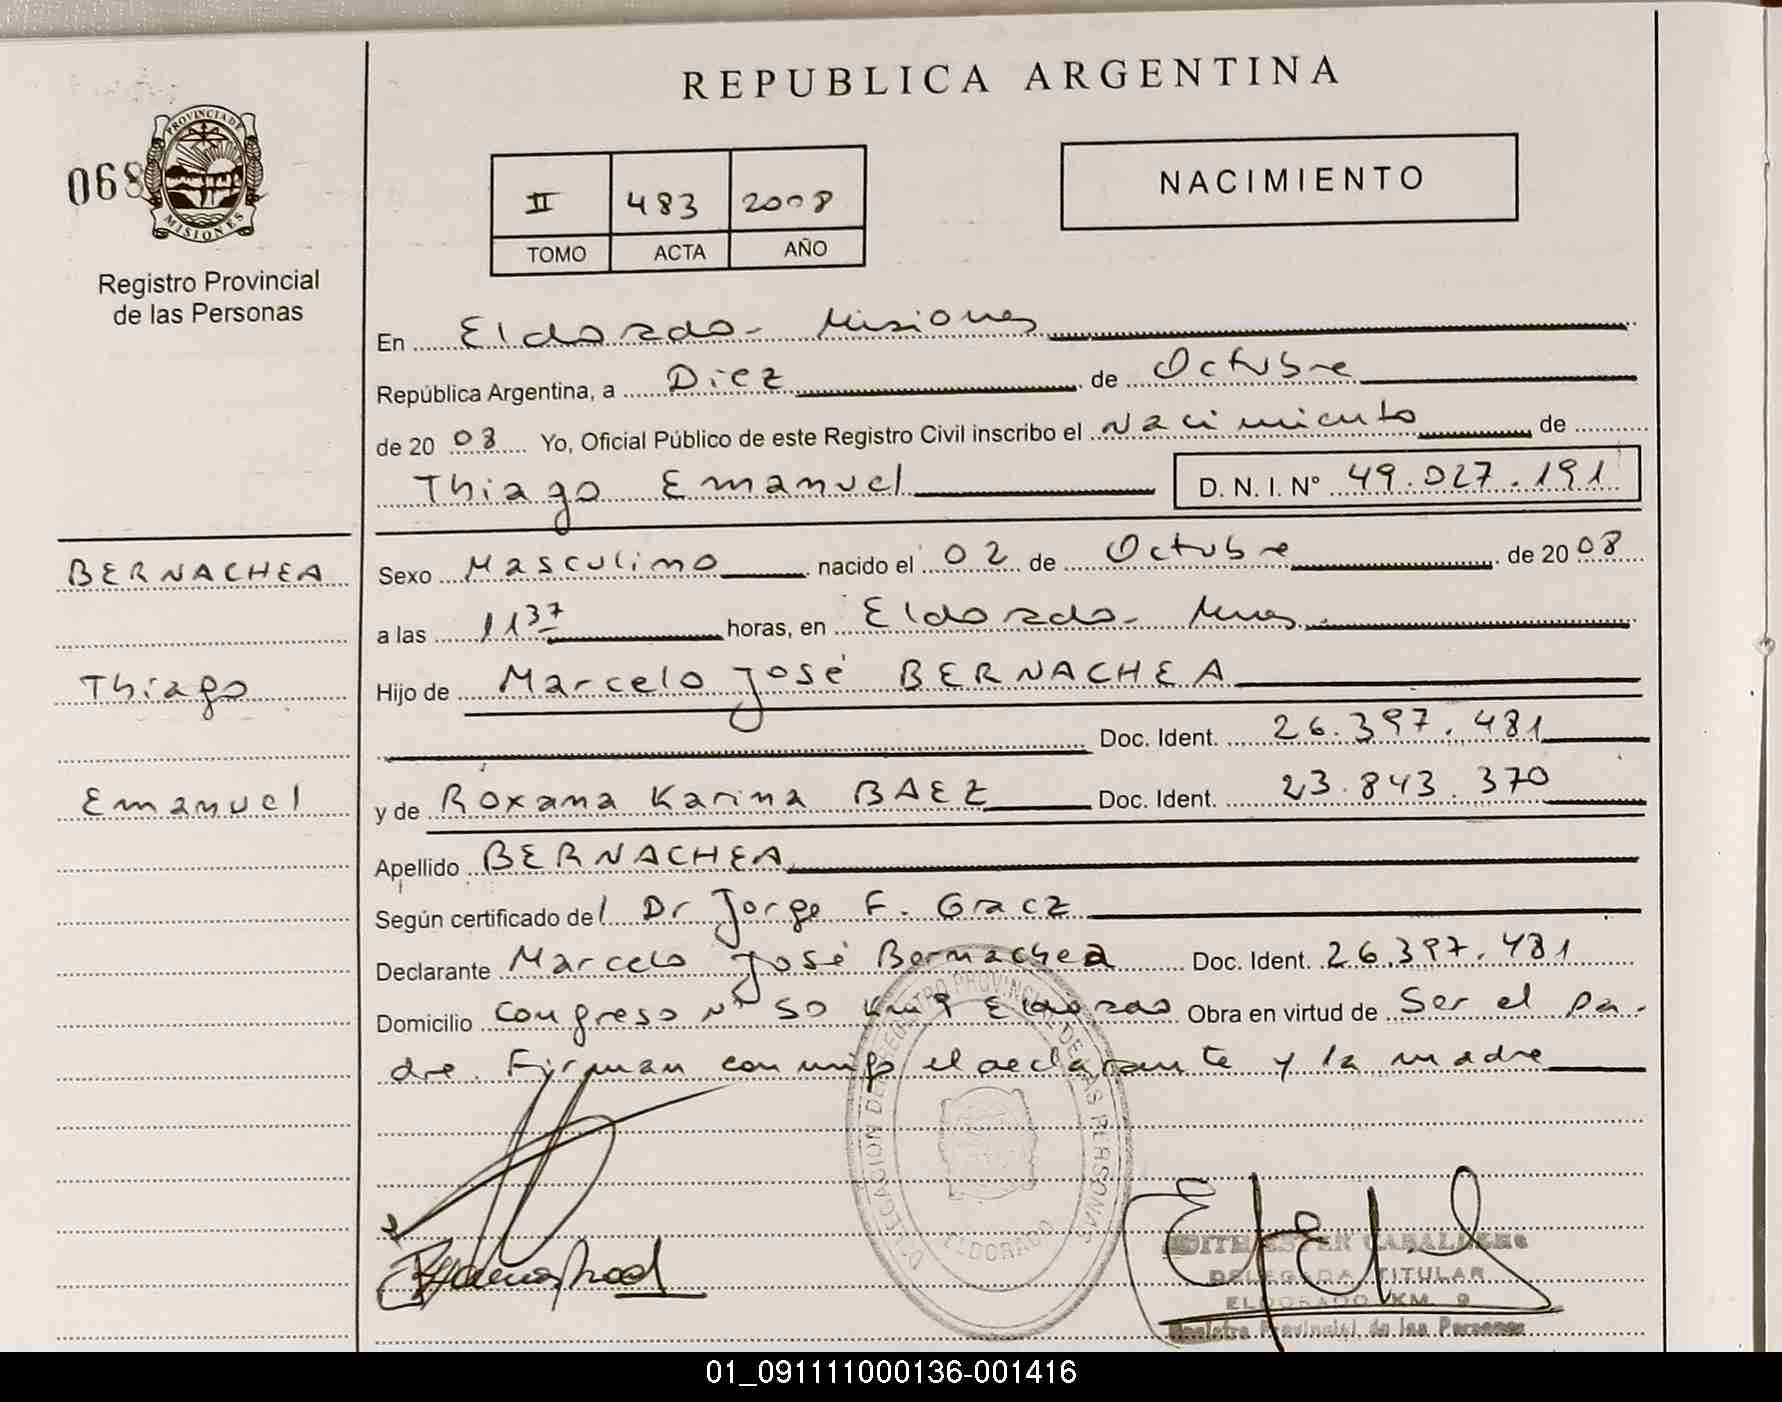 REPUBLICA ARGENTINA
068
PROVINCIA DE
MISIONES
Registro Provincial
de las Personas
II 483 2008
TOMO ACTA AÑO
NACIMIENTO
En Eldorado - Misiones
República Argentina, a Diez de Octubre
de 20 08 Yo, Oficial Público de este Registro Civil inscribo el Nacimiento de
Thiago Emanuel D. N. I. N° 49.027.191
BERNACHEA
Sexo Masculino nacido el 02 de Octubre de 20 08
a las 11 37 horas, en Eldorado - Mnes.
Thiago
Hijo de Marcelo José BERNACHEA
Doc. Ident. 26.397.481
Emanuel
y de Roxana Karina BAEZ Doc. Ident. 23.843.370
Apellido BERNACHEA
Según certificado del Dr Jorge F. Gracz
Declarante Marcelo José Bernachea Doc. Ident. 26.397.481
Domicilio Congreso N° 50 Km 9 Eldorado Obra en virtud de Ser el pa-
dre. Firman conmigo el declarante y la madre
DELEGACION DEL REGISTRO PROVINCIAL DE LAS PERSONAS
ELDORADO
EDITH ESTER CABALLERO
DELEGADA TITULAR
ELDORADO KM. 9
Registro Provincial de las Personas
01_091111000136-001416